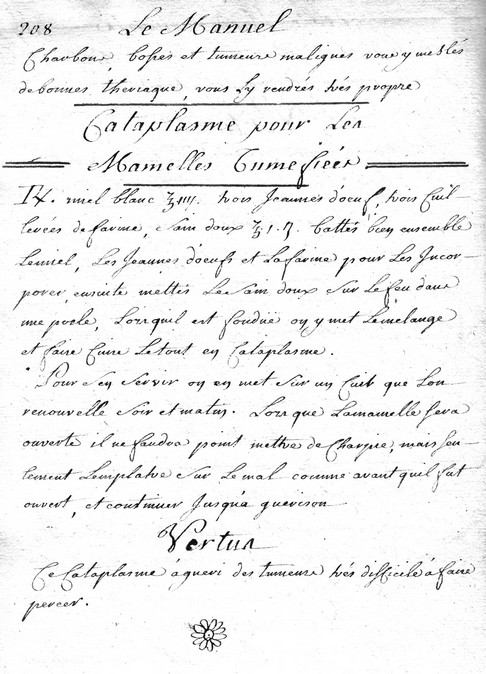 208 Le Manuel
Charbons bosses et tumeurs malignes vous y meslés
de bonnes theriaque, vous Ly rendrés trés propre
Cataplasme pour Les
Mamelles Tumefiées
R. miel blanc ℥ iiii. trois Jeaunes d'oeuf, trois Cuil-
lerées de farine, Sain doux ℥. i. ß. battés bien ensemble
Lemiel, Les Jeaunes d'oeufs et Lafarine pour Les Incor-
porer, ensuite mettés Le Sain doux Sur Le feu dans
une poele, Lorsquil est fondüe on y met Lemelange
et faire Cuire Letout en Cataplasme.
Pour Sen Servir on en met Sur un Cuir que Lon
renouvelle Soir et matin. Lorsque Lamamelle Sera
ouverte il ne faudra point mettre de Charpie, mais Seu-
lement Lemplatre Sur Le mal comme avant quil fut
ouvert, et continuer Jusqu'a guerison
Vertus
Ce Cataplasme à gueri des tumeurs trés difficile à faire
percer.